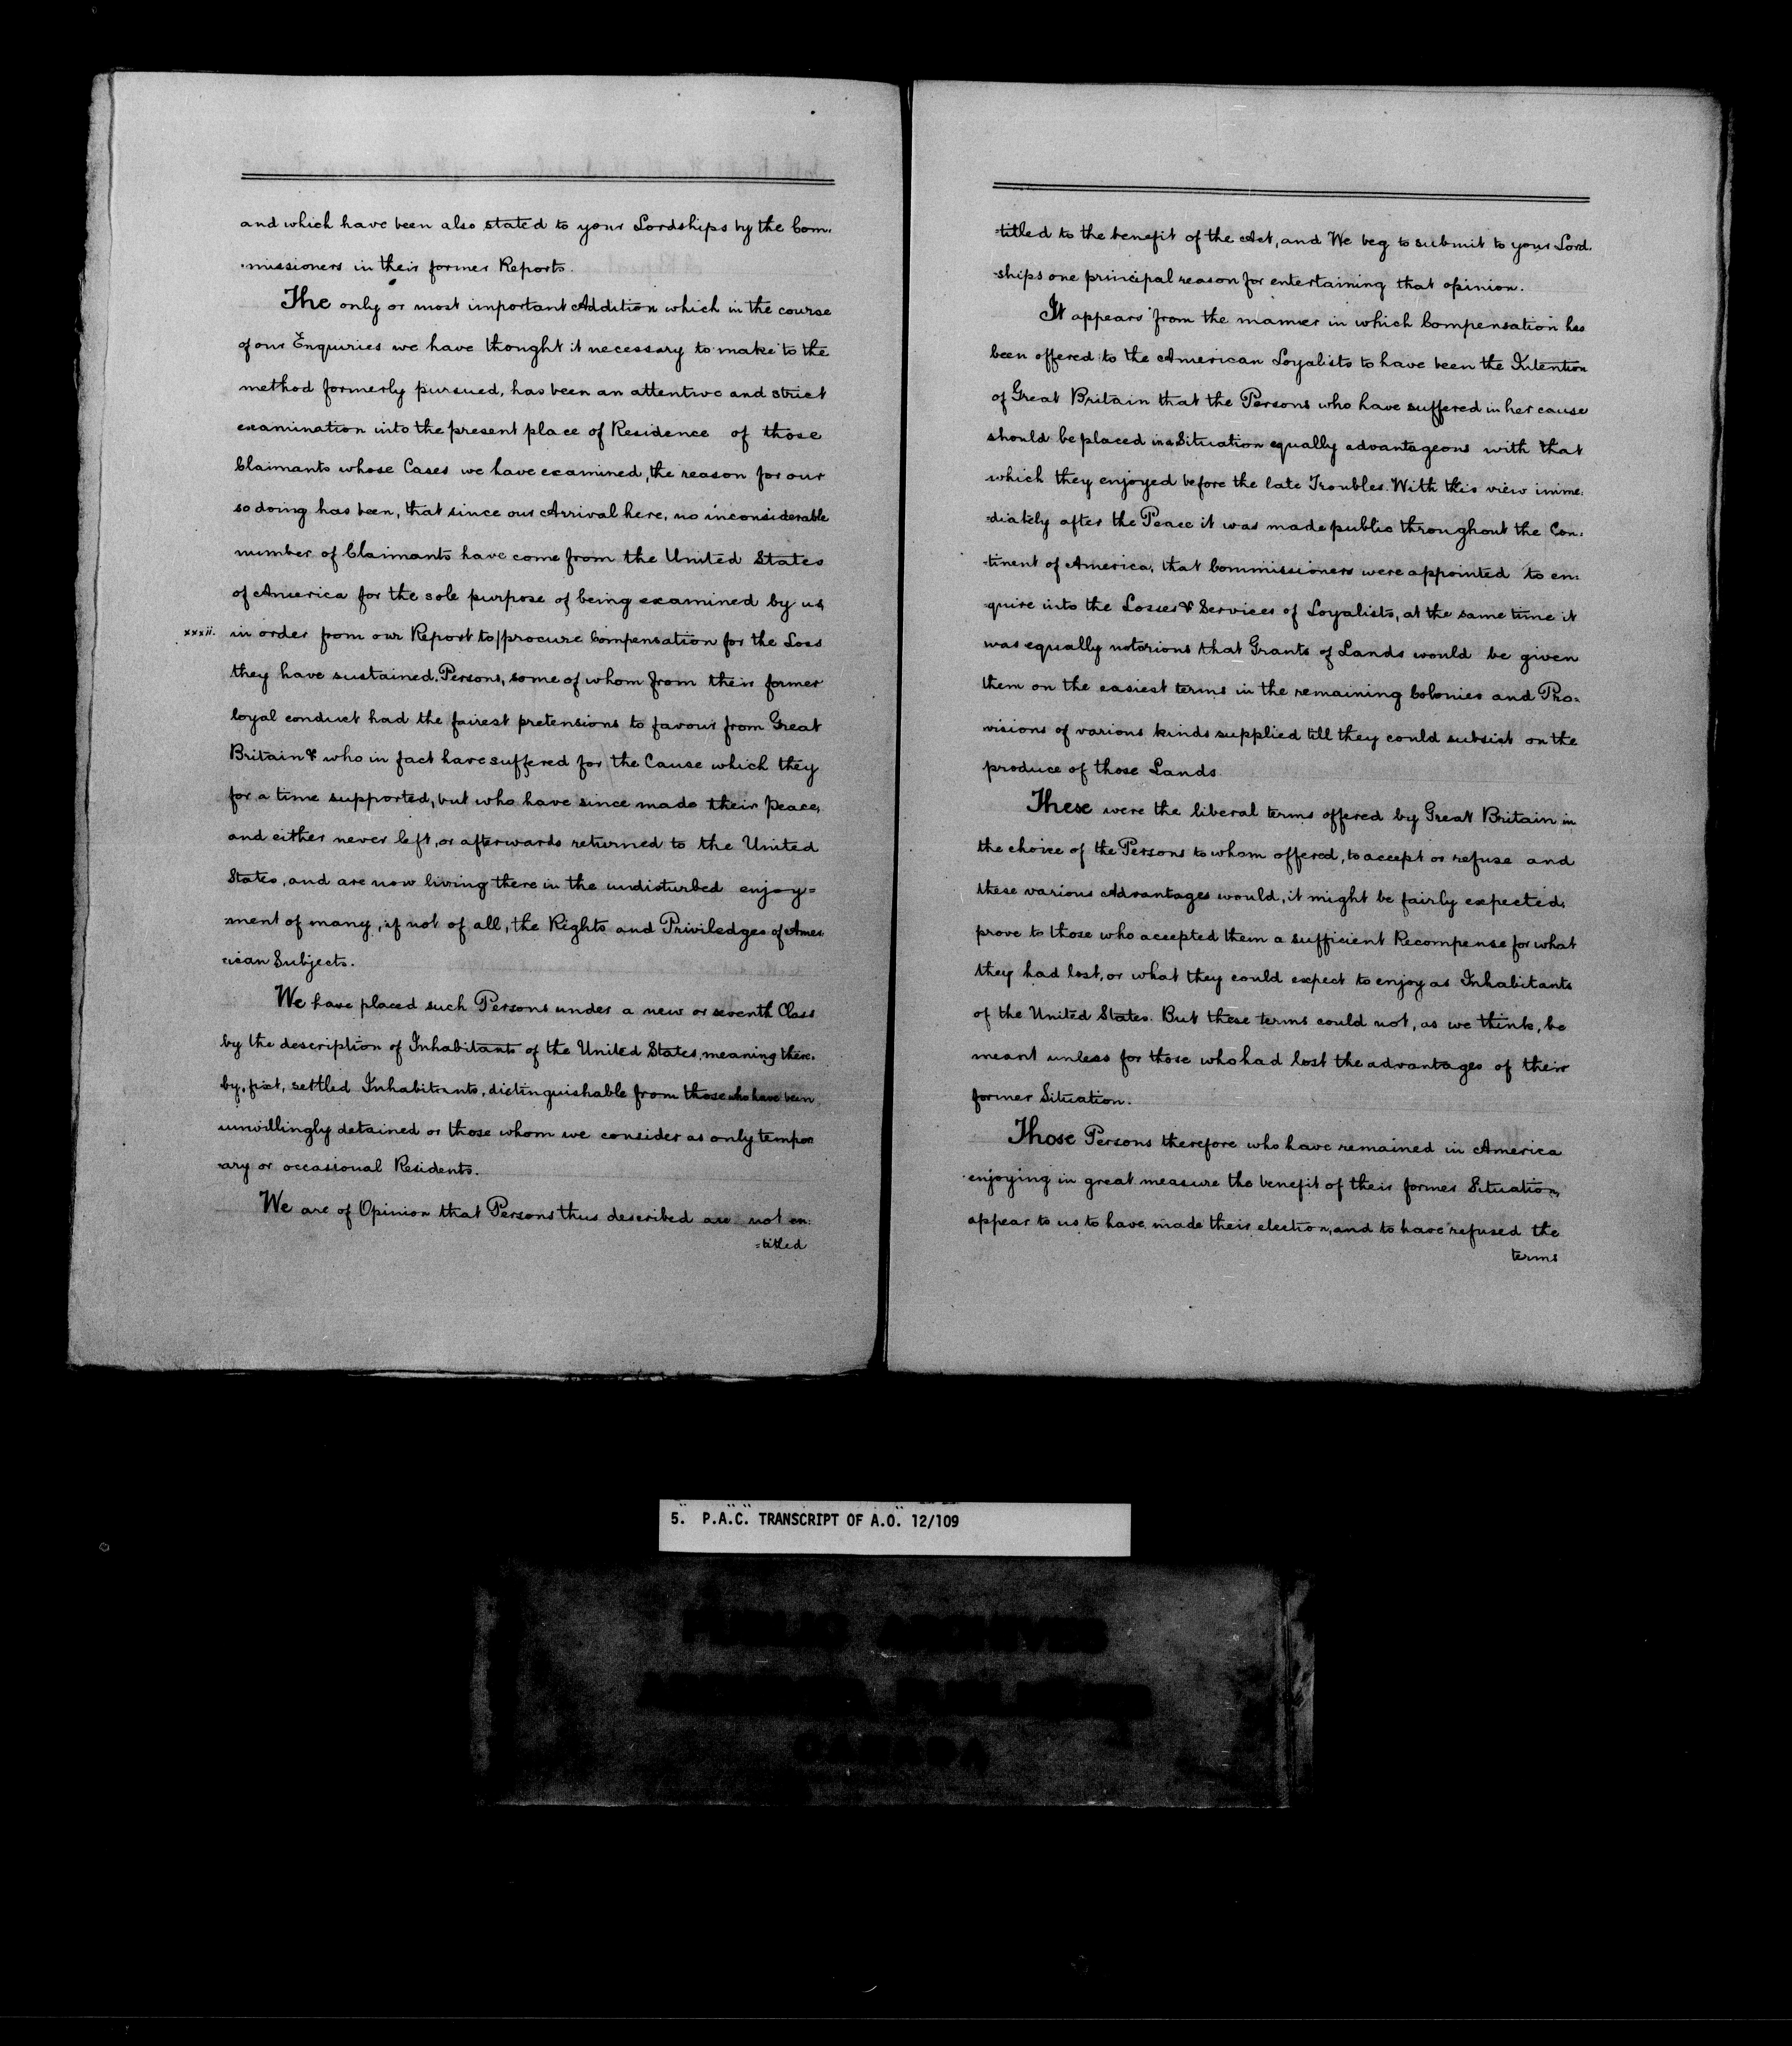 and which have been also stated to your Lordships by the Com.
-missioners in their former Reports.
The only or most important Addition which in the course
of our Enquiries we have thought it necessary to make to the
method formerly pursued, has been an attentive and strict
examination into the present place of Residence of those
Claimants whose Cases we have examined, the reason for our
so doing has been, that since our Arrival here, no inconsiderable
number of Claimants have come from the United States
of America for the sole purpose of being examined by us,
xxxii. in order from our Report to/procure Compensation for the Loss
they have sustained. Persons, some of whom from their former
loyal conduct had the fairest pretensions to favour from Great
Britain & who in fact have suffered for the Cause which they
for a time supported, but who have since made their Peace,
and either never left, or afterwards returned to the United
States, and are now living there in the undisturbed enjoy=
-ment of many, if not of all, the Rights and Priviledges of Amer
-ican Subjects.
We have placed such Persons under a new or seventh Class
by the description of Inhabitants of the United States, meaning there.
by, fixt, settled Inhabitants, distinguishable from those who have been
unwillingly detained or those whom we consider as only tempor
-ary or occasional Residents.
We are of Opinion that Persons thus described are not en:
=titled
-titled to the benefit of the Act, and We beg to submit to your Lord.
-ships one principal reason for entertaining that opinion.
It appears from the manner in which Compensation has
been offered to the American Loyalists to have been the Intention
of Great Britain that the Persons who have suffered in her cause
should be placed in a Situation equally advantageous with that
which they enjoyed before the late Troubles. With this view imme:
-diately after the Peace it was made public throughout the Con:
-tinent of America, that Commissioners were appointed to en:
-quire into the Losses & Services of Loyalists, at the same time it
was equally notorious that Grants of Lands would be given
them on the easiest terms in the remaining Colonies and Pro-
visions of various kinds supplied till they could subsist on the
produce of those Lands
These were the liberal terms offered by Great Britain in
the choice of the Persons to whom offered, to accept or refuse and
these various Advantages would, it might be fairly expected,
prove to those who accepted them a sufficient Recompense for what
they had lost, or what they could expect to enjoy as Inhabitants
of the United States. But these terms could not, as we think, be
meant unless for those who had lost the advantages of their
former Situation.
Those Persons therefore who have remained in America
enjoying in great measure the benefit of their former Situation,
appear to us to have made their election, and to have refused the
terms
5. P.A.C. TRANSCRIPT OF A.O. 12/109
PUBLIC ARCHIVES
CANADA